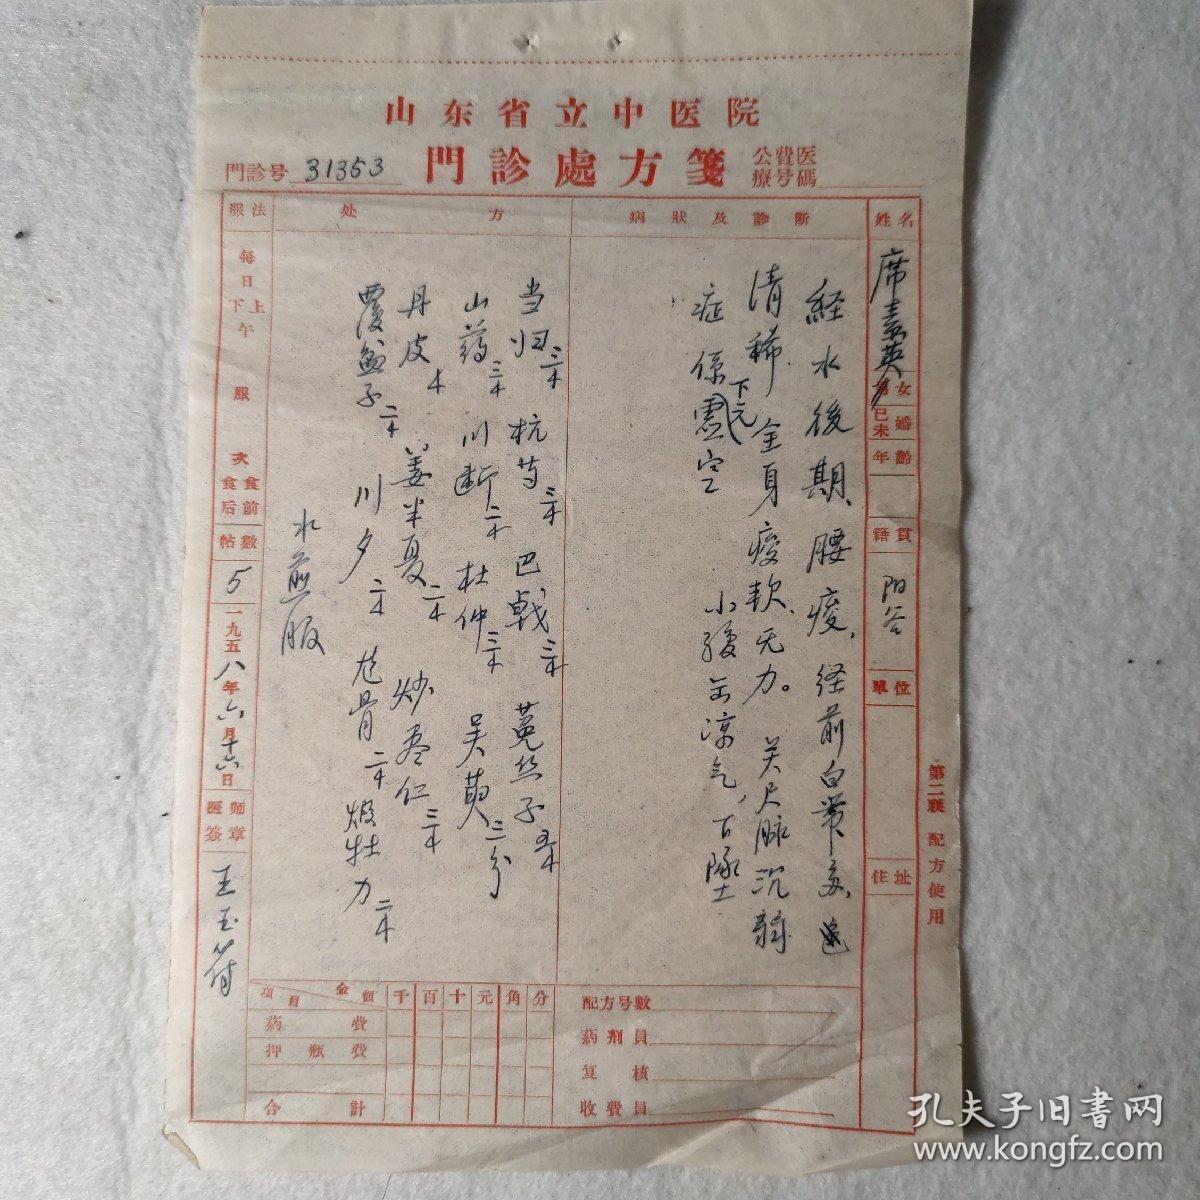 山东省立中医院
門診号 31353
門診處方箋
公費医
療号碼
姓名
席素英
女
已未婚
年齡
籍貫
阳谷
單位
住址
病狀及診断
経水後期、腰痠、经前白带多、
清稀、全身痠软、无力。关尺脉沉弱
症係下元空
小腹至凉气,下墜
处方
当归三钱 杭芍三钱 巴戟三钱 菟丝子五钱
山药三钱 川断二钱 杜仲三钱 吴萸三分
丹皮钱 姜半夏二钱 炒枣仁三钱
覆盆子二钱 川夕二钱 龙骨二钱 煅牡力二钱
水煎服
服法
每日上下午服 次食前食后
帖數
5
一九五八年六月十六日
医师簽章
王玉符
第二联 配方使用
項目 金額 千 百 十 元 角 分
葯費
押瓶費
合計
配方号數
葯剂員
复核
收費員
孔夫子旧書网
www.kongfz.com